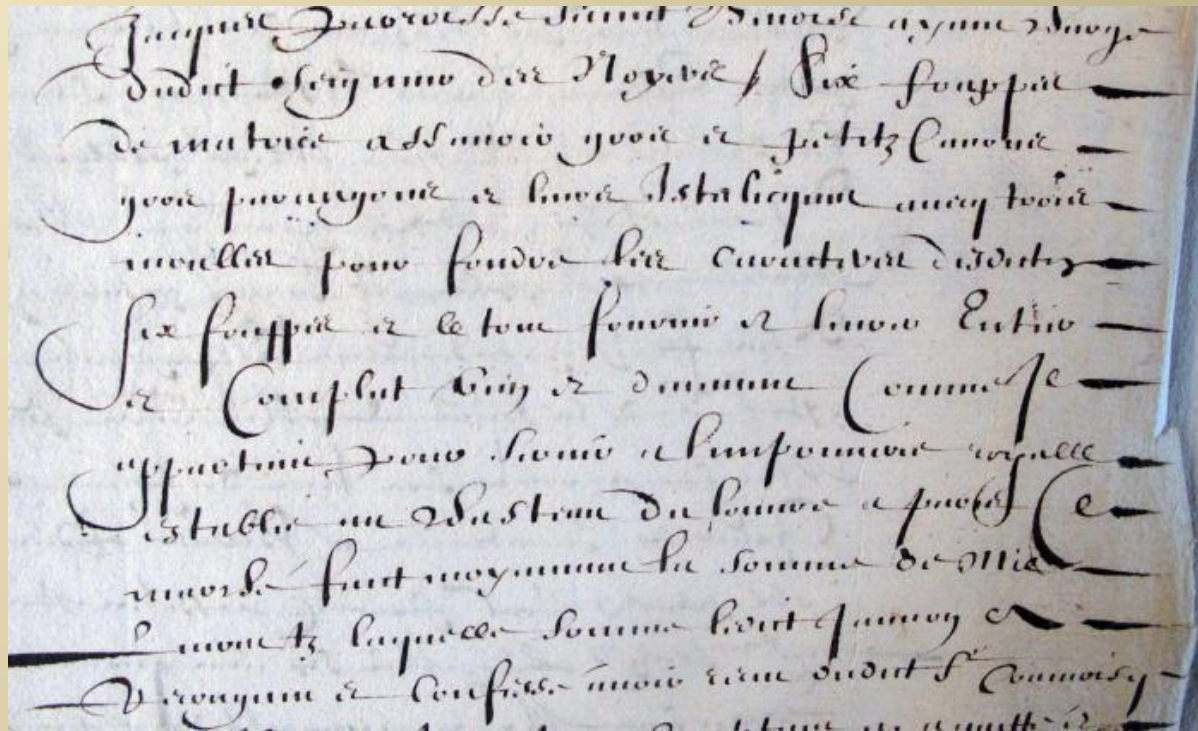 Jacques parroisse sainct Benoist ayant charge
dudict seigneur des Noyers / Six frappes
de matrice assavoir gros et petitz Canons
gros parangons et leurs Istalicques avecq trois
moulles pour fondre les caracteres desdictz
six frappes et le tout fournir et livrer Entier
et Complet bien et deument Comme Il
appartient pour servir a limprimerie royalle
establie au chasteau du louvre a paris Ce
marché faict moyennant la somme de Mil
tz laquelle somme ledict Jannon a
recongnu et confesse avoir receu dudict Sr Cramoisy